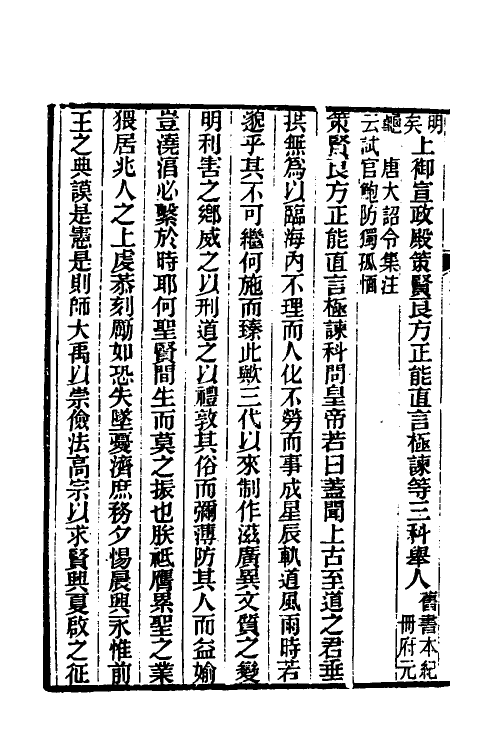 明矣上御宣政殿策賢良方正能直言極諫等三科舉人舊書本紀冊府元
龜唐大詔令集注
云試官鮑防獨孤愐
策賢良方正能直言極諫科問皇帝若曰蓋聞上古至道之君垂
拱無為以臨海內不理而人化不勞而事成星辰軌道風雨時若
邈乎其不可繼何施而臻此歟三代以來制作滋廣異文質之變
明利害之鄉威之以刑道之以禮敦其俗而彌薄防其人而益媮
豈澆淳必繫於時耶何聖賢間生而莫之振也朕祇膺累聖之業
猥居兆人之上虔恭刻勵如恐失墜憂濟庶務夕惕晨興永惟前
王之典謨是憲是則師大禹以崇儉法高宗以求賢興夏啟之征